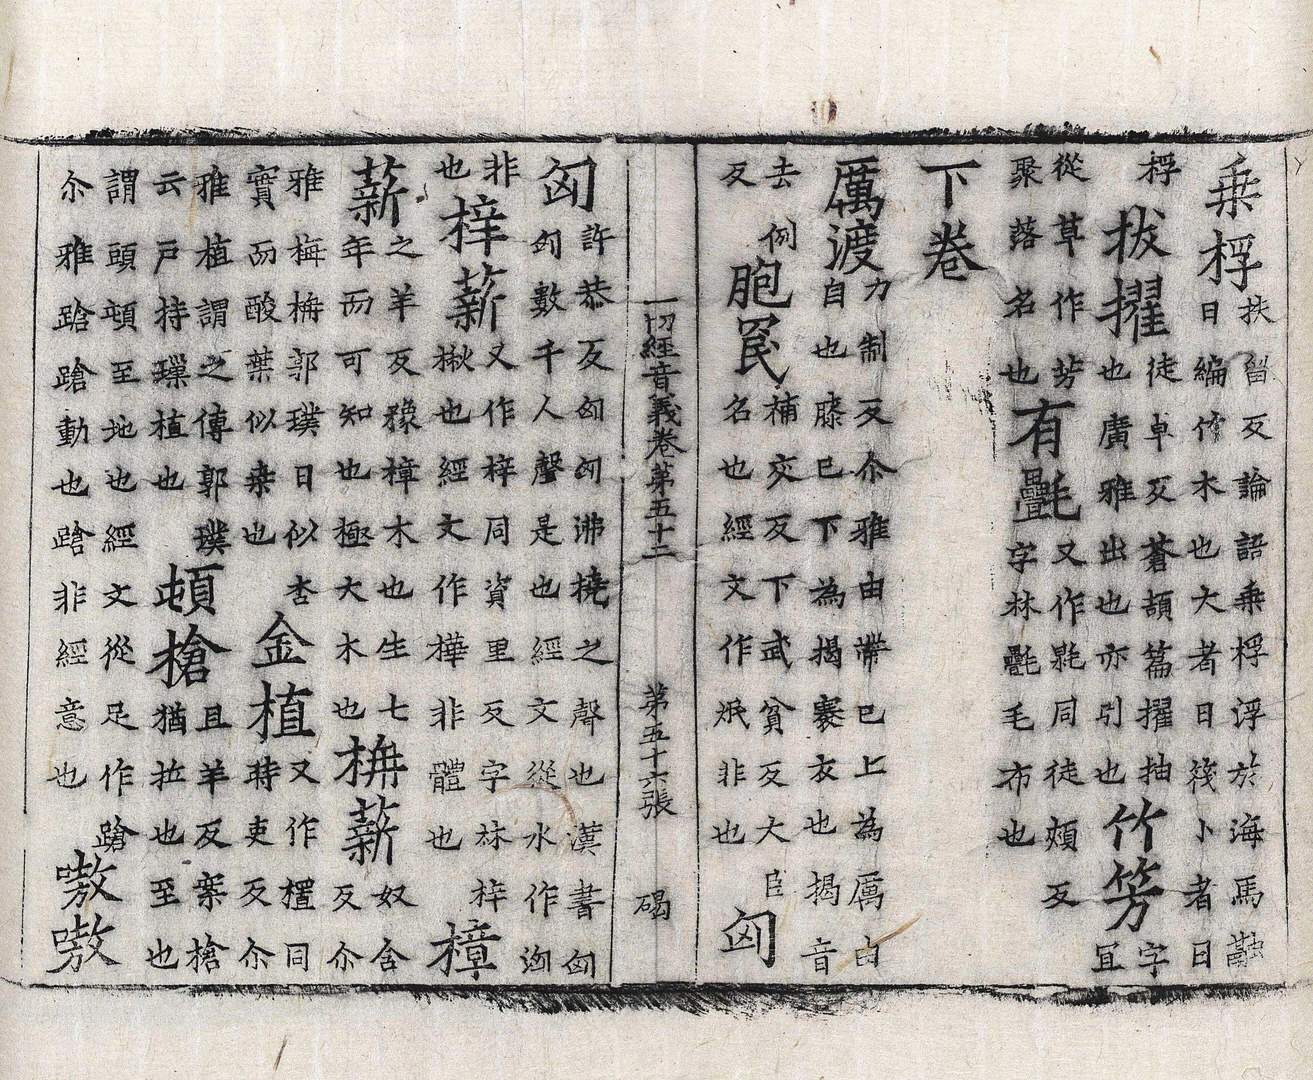 乗桴扶留反論語乗桴浮於海馬融曰編竹木也大者曰筏小者曰
桴拔擢徒卓反蒼頡篇擢抽也廣雅出也亦引也竹笏字冝
從草作艻聚落名也有氎又作㲲同徒頰反字林氎毛布也
下卷
厲渡力制反尒雅由帶已上為厲由自也膝已下為揭褰衣也揭音
去例反胞罠補交反下武貧反大臣名也經文作炾非也匈
一切經音義卷第五十二 第五十六張 碣
匈許恭反匈匈沸撓之聲也漢書匈匈數千人聲是也經文從水作洶
非也梓薪又作梓同資里反字林梓楸也經文作樺非體也樟
薪之羊反豫樟木也生七年而可知也極大木也栴薪奴含反尒
雅梅栴郭璞曰似杏實而酸葉似桒也金植又作㯰同時吏反尒
雅植謂之傳郭璞云戸持璅植也頓槍且羊反案槍猶拉也至也
謂頭頓至地也經文從足作蹌尒雅蹌蹌動也蹌非經意也嗷嗷